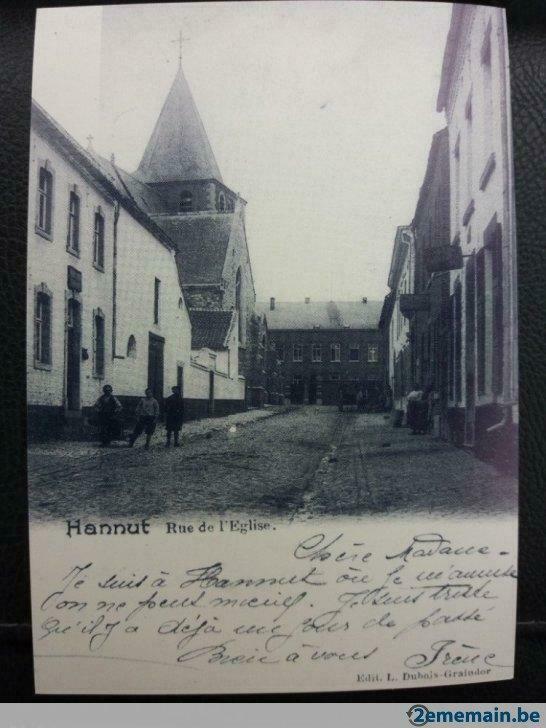 Hannut Rue de l'Eglise.
Chère Madame -
Je suis à Hannut où je m'amuse
on ne peut mieux. Je suis triste
qu'il y a déjà une jour de passé
Bien à vous Irène
Edit. L. Dubois-Graindor
2ememain.be